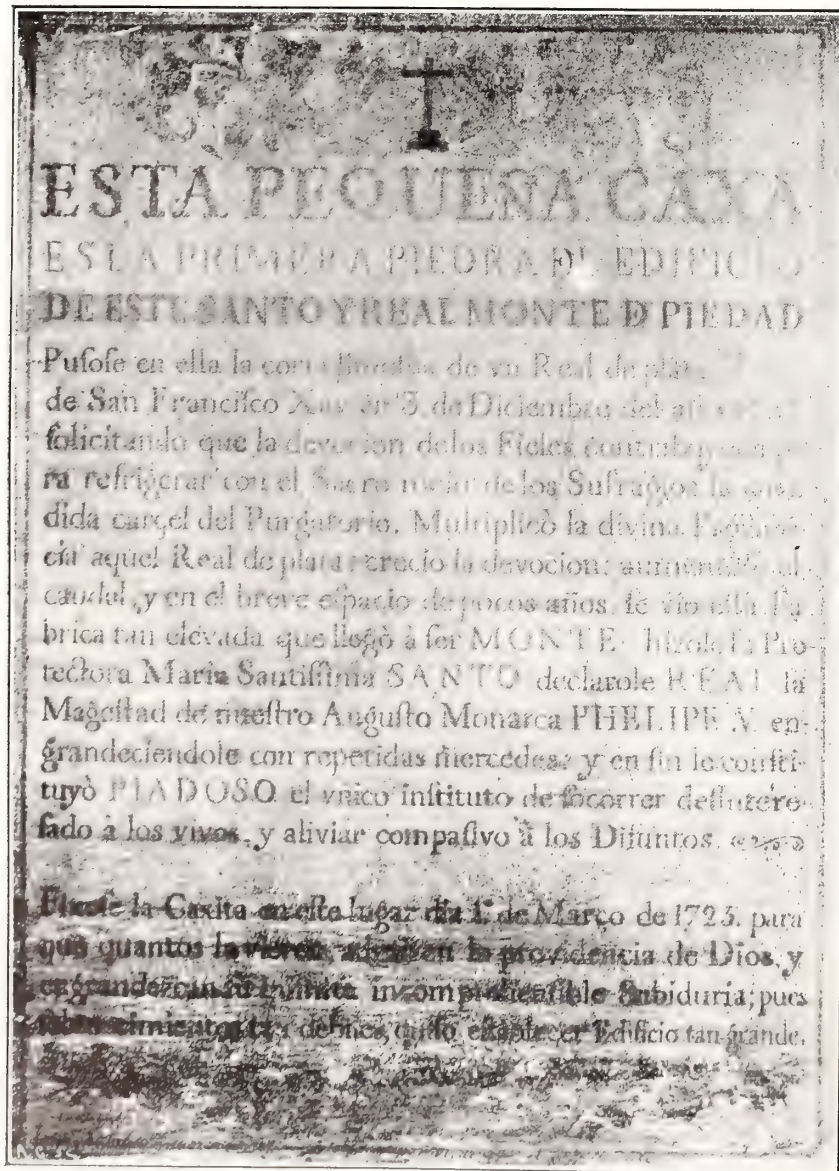 ESTA PEQUEÑA CAXA
ES LA PRIMERA PIEDRA DEL EDIFICIO
DE ESTE SANTO Y REAL MONTE D PIEDAD
Puſoſe en ella la de vn Real de plata
de San Franciſco 3. de Diciembre del
ſolicitando que la devocion de los Fieles
ra refrigerar con el de los Sufragios la
dida carçel del Purgatorio. Multiplicò la divina
cia aquel Real de plata: creciò la devocion:
caudal, y en el breve eſpacio de pocos años, ſe viò eſta Fa
brica tan elevada que llegò à ſer MONTE. la Pro
tectora Maria Santiſſima SANTO declarole REAL la
Mageſtad de nueſtro Auguſto Monarca PHELIPE V. en-
grandeciendole con repetidas mercedes; y en fin le conſti-
tuyò PIADOSO el vnico inſtituto de ſocorrer deſintere-
ſado à los vivos, y aliviar compaſivo à los Difuntos.
la Caxita en eſte lugar dia 1. de Março de 1723. para
que quantos la vieren, la providencia de Dios, y
engrandezcan ſu incomprehenſible Sabiduria; pues
quiſo, eſtablecer Edificio tan grande.